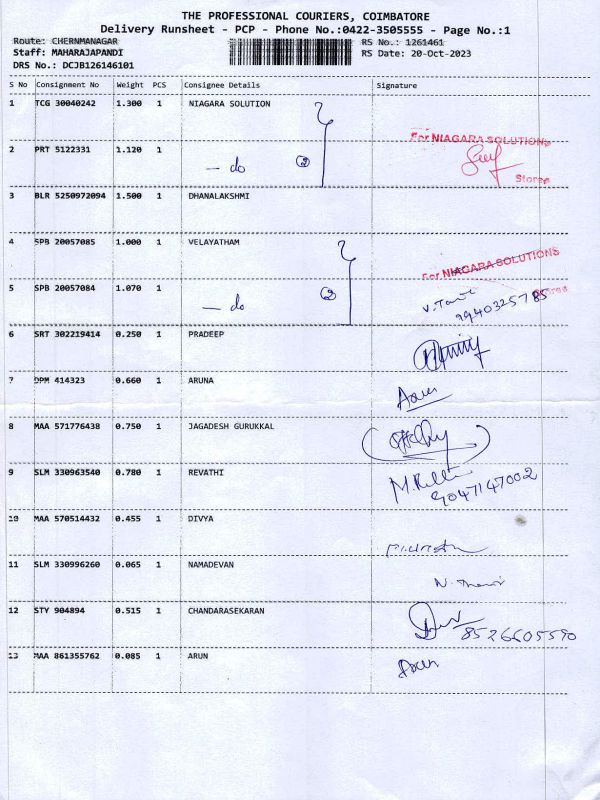 THE PROFESSIONAL COURIERS, COIMBATORE
Delivery Runsheet - PCP - Phone No.:0422-3505555 - Page No.:1
Route: CHERNMANAGAR RS No.: 1261461
Staff: MAHARAJAPANDI RS Date: 20-Oct-2023
DRS No.: DCJB126146101
S No Consignment No Weight PCS Consignee Details Signature
1 TCG 30040242 1.300 1 NIAGARA SOLUTION
For NIAGARA SOLUTIONS
2 PRT 5122331 1.120 1
— do 2
Stores
3 BLR 5250972094 1.500 1 DHANALAKSHMI
4 SPB 20057085 1.000 1 VELAYATHAM
For NIAGARA SOLUTIONS
5 SPB 20057084 1.070 1
— do 2
9940325785
6 SRT 302219414 0.250 1 PRADEEP
7 DPM 414323 0.660 1 ARUNA
8 MAA 571776438 0.750 1 JAGADESH GURUKKAL
9 SLM 330963540 0.780 1 REVATHI
9047147002
10 MAA 570514432 0.455 1 DIVYA
11 SLM 330996260 0.065 1 NAMADEVAN
12 STY 904894 0.515 1 CHANDARASEKARAN
8526605590
13 MAA 861355762 0.085 1 ARUN